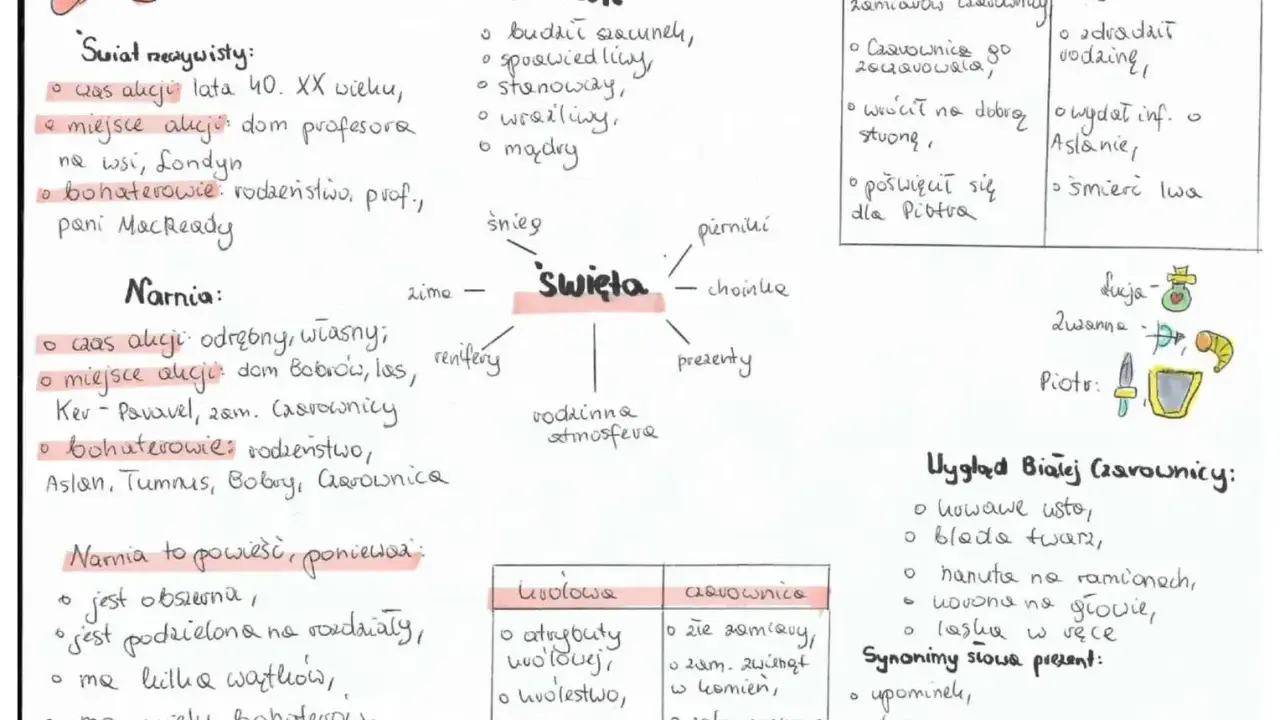 Świat rzeczywisty:
o czas akcji: lata 40. XX wieku,
o miejsce akcji: dom profesora
na wsi, Londyn
o bohaterowie: rodzeństwo, prof.,
pani MacReady
Narnia:
o czas akcji: odrębny, własny;
o miejsce akcji: dom Bobrów, las,
Ker-Paravel, zam. Czarownicy
o bohaterowie: rodzeństwo,
Aslan, Tumnus, Bobry, Czarownica
Narnia to powieść, ponieważ:
o jest obszerna,
o jest podzielona na rozdziały,
o ma kilka wątków,
o budził szacunek,
o sprawiedliwy,
o stanowczy,
o wrażliwy,
o mądry
święta
śnieg
pierniki
zima
choinka
renifery
prezenty
rodzinna
atmosfera
królowa
o atrybuty
królowej,
o królestwo,
czarownica
o złe zamiary,
o zam. zwierząt
w kamień,
zamiarów czarownicy
o Czarownica go
zaczarowała,
o wrócił na dobrą
stronę,
o poświęcił się
dla Piotra
o zdradził
rodzinę,
o wydał inf. o
Aslanie,
o śmierć lwa
Łucja -
Zuzanna -
Piotr:
Wygląd Białej Czarownicy:
o krwawe usta,
o blada twarz,
o narzuta na ramionach,
o korona na głowie,
o laska w ręce
Synonimy słowa prezent:
o upominek,